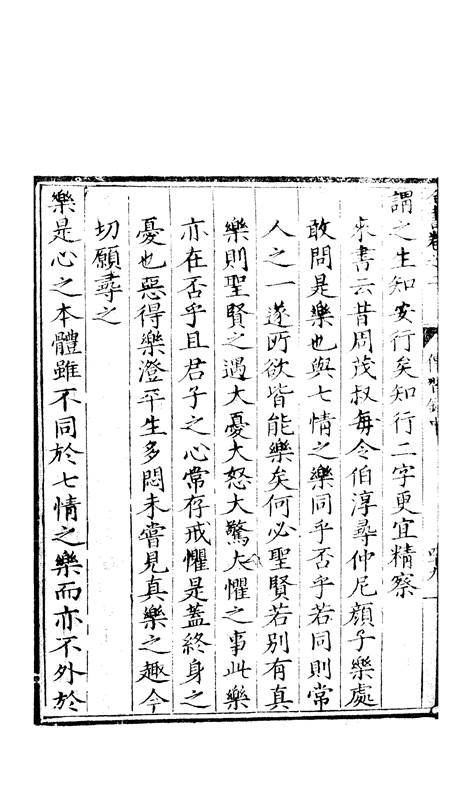 謂之生知安行矣知行二字更宜精察
來書云昔周茂叔每令伯淳尋仲尼顏子樂處
敢問是樂也與七情之樂同乎否乎若同則常
人之一遂所欲皆能樂矣何必聖賢若別有真
樂則聖賢之遇大憂大怒大驚大懼之事此樂
亦在否乎且君子之心常存戒懼是蓋終身之
憂也惡得樂澄平生多悶未嘗見真樂之趣今
切願尋之
樂是心之本體雖不同於七情之樂而亦不外於